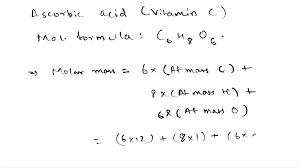 Ascorbic acid (Vitamin C)
Mol. formula: C6H8O6.
⇒ Molar mass = 6x(At mass C) +
8x(At mass H) +
6x(At mass O)
= (6x12) + (8x1) + (6x